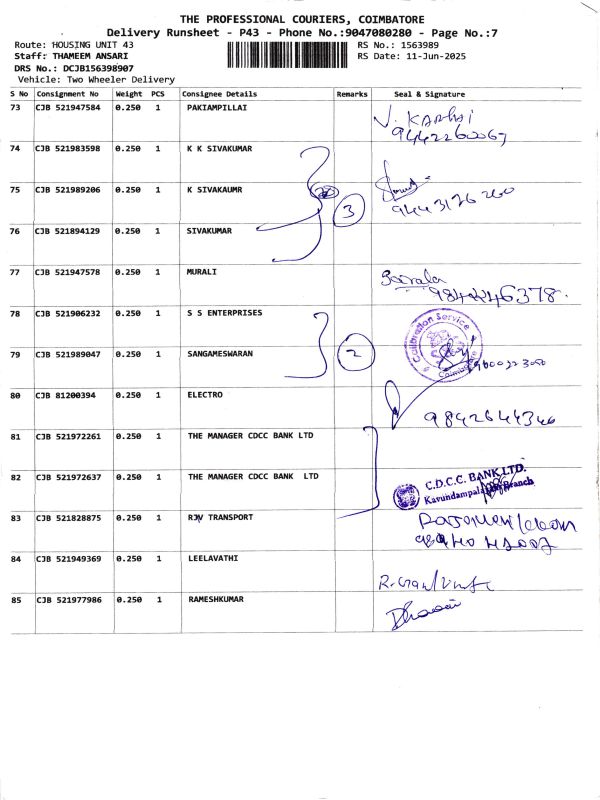 THE PROFESSIONAL COURIERS, COIMBATORE
Delivery Runsheet - P43 - Phone No.:9047080280 - Page No.:7
Route: HOUSING UNIT 43 RS No.: 1563989
Staff: THAMEEM ANSARI RS Date: 11-Jun-2025
DRS No.: DCJB156398907
Vehicle: Two Wheeler Delivery
S No Consignment No Weight PCS Consignee Details Remarks Seal & Signature
73 CJB 521947584 0.250 1 PAKIAMPILLAI
74 CJB 521983598 0.250 1 K K SIVAKUMAR
75 CJB 521989206 0.250 1 K SIVAKAUMR 3
9443176260
76 CJB 521894129 0.250 1 SIVAKUMAR
77 CJB 521947578 0.250 1 MURALI
78 CJB 521906232 0.250 1 S S ENTERPRISES
Calibration Service
79 CJB 521989047 0.250 1 SANGAMESWARAN 2
80 CJB 81200394 0.250 1 ELECTRO
9842644346
81 CJB 521972261 0.250 1 THE MANAGER CDCC BANK LTD
82 CJB 521972637 0.250 1 THE MANAGER CDCC BANK LTD
C.D.C.C. BANK LTD.
Branch
83 CJB 521828875 0.250 1 RJV TRANSPORT
84 CJB 521949369 0.250 1 LEELAVATHI
85 CJB 521977986 0.250 1 RAMESHKUMAR